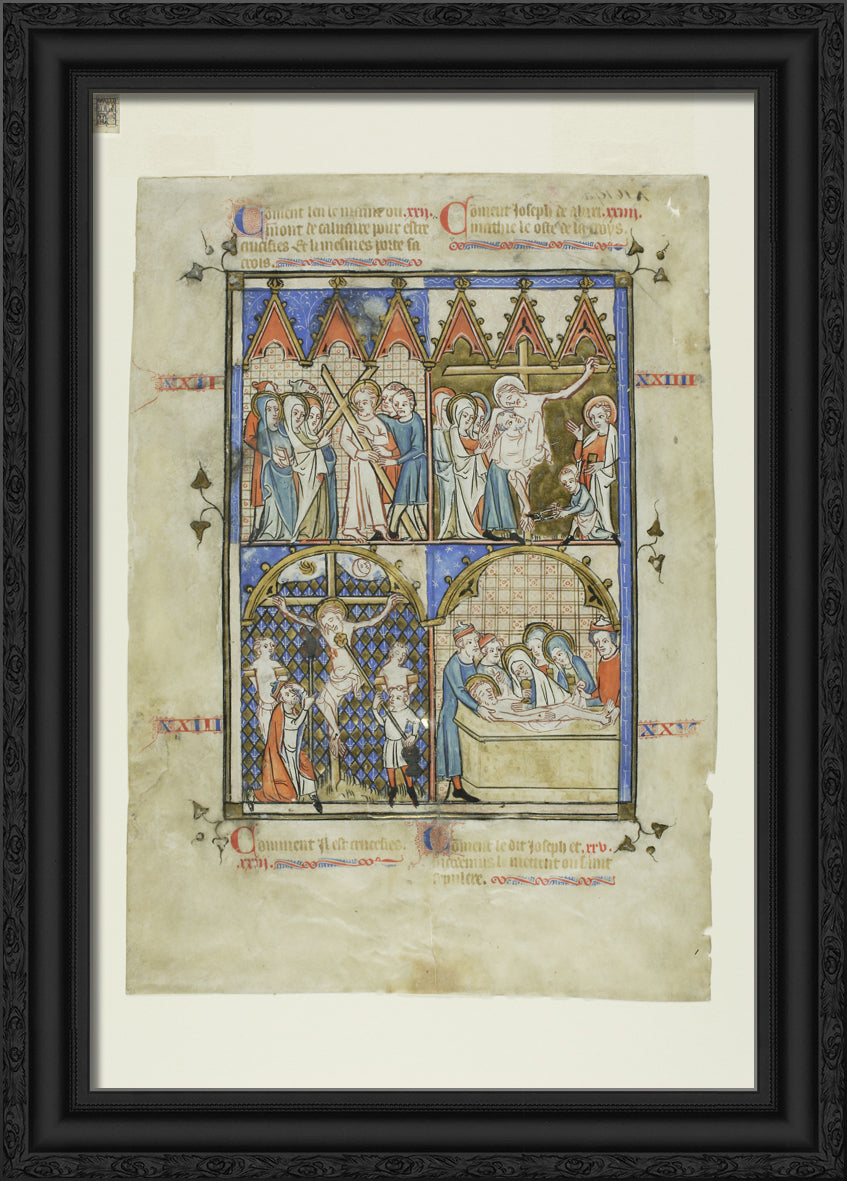 Coment len le maine ou .xxii.
mont de caluaire pour estre
crucefies. Et li mesmes porte sa
crois.
Coment Joseph de .xxiiii.
mathie le oste de la croys.
XXII
XXIIII
XXIII
XXV
Comment Jl est crucefies.
.xxiii.
Coment le dit Joseph et .xxv.
le metent ou saint
sepulcre.